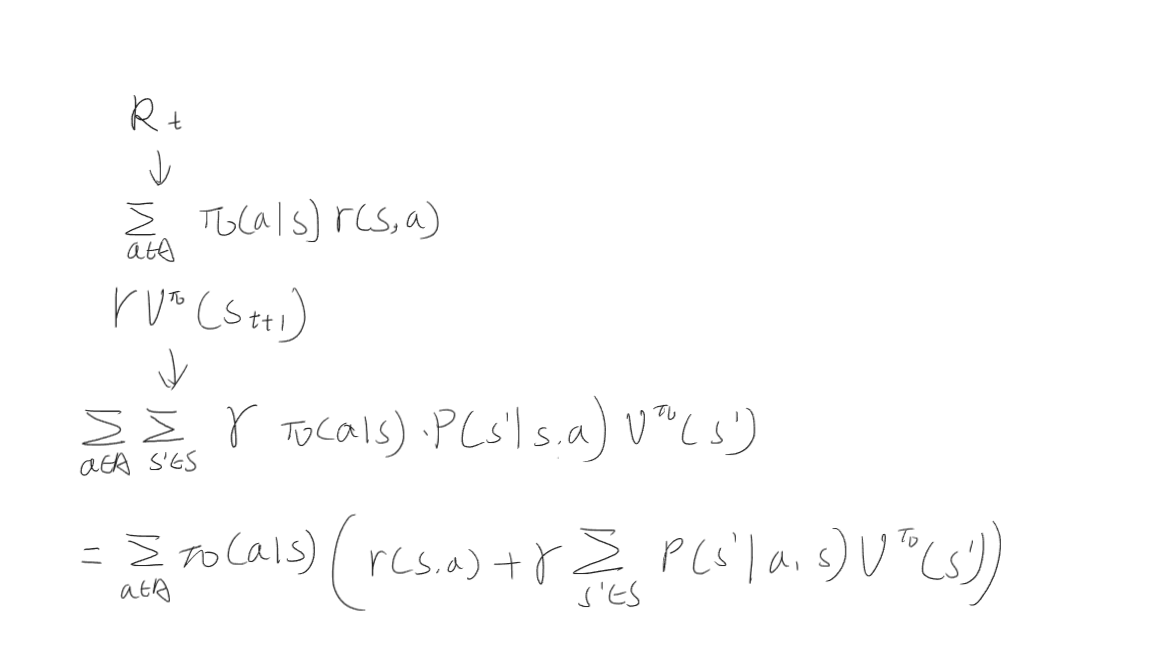 R_t
↓
∑_{a∈A} π(a|s) r(s,a)
γ V^π(s_{t+1})
↓
∑_{a∈A} ∑_{s'∈S} γ π(a|s)·P(s'|s,a) V^π(s')
= ∑_{a∈A} π(a|s) (r(s,a) + γ ∑_{s'∈S} P(s'|a,s) V^π(s'))